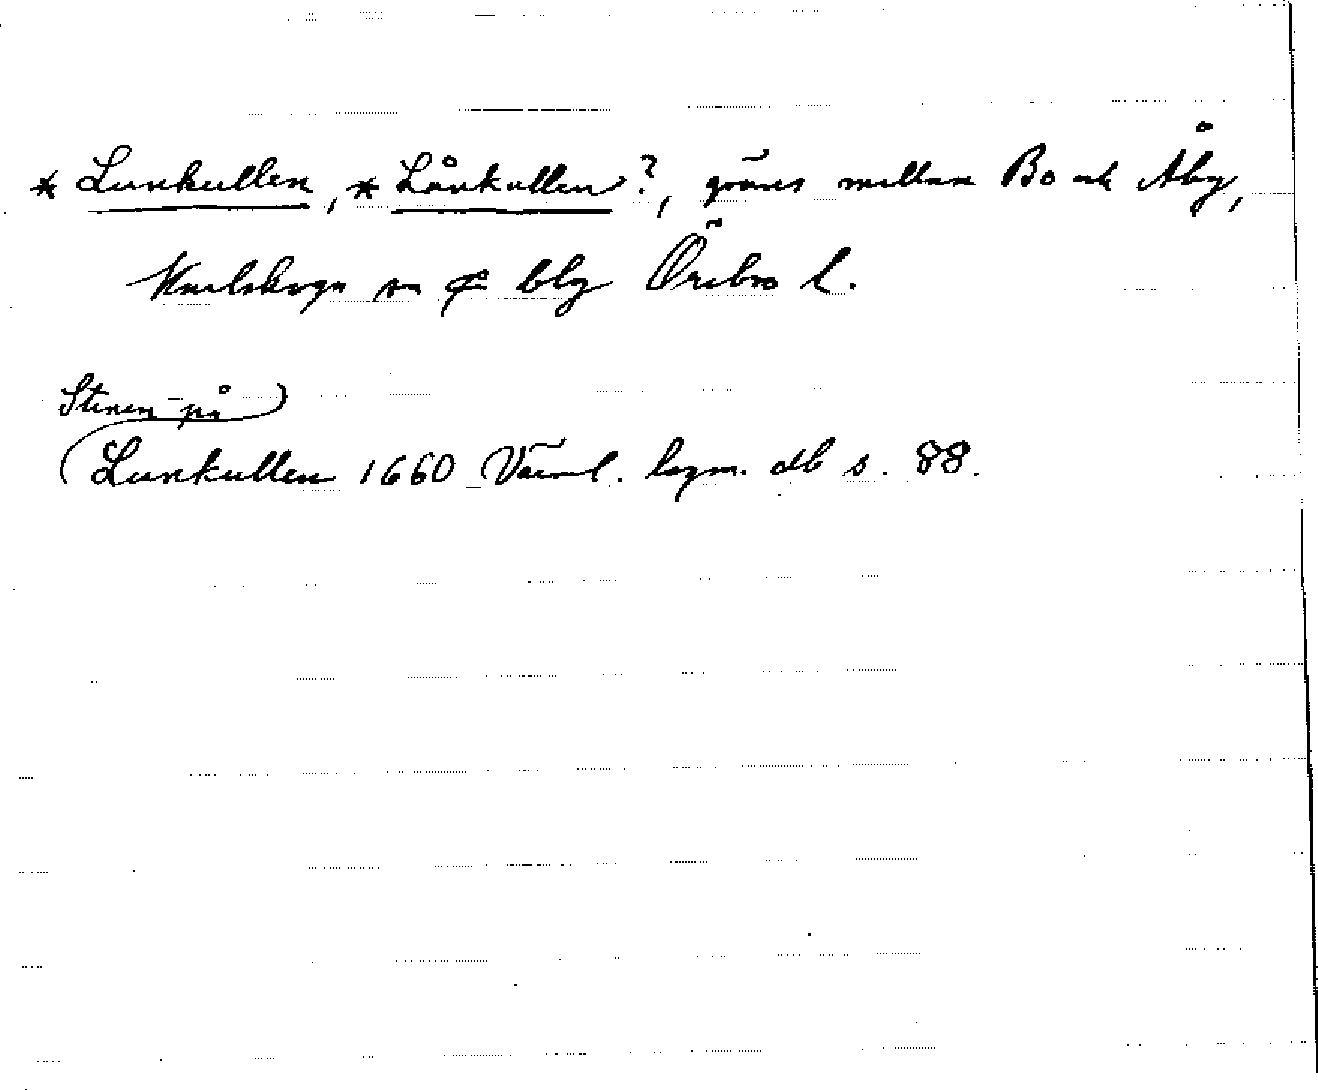 * Lunkullen, * Lånkullen?, gräns mellan Bo och Åby,
Karlskoga sn o blg Örebro l.
Stenen på
Lunkullen 1660 Värml. lagm. db s. 88.